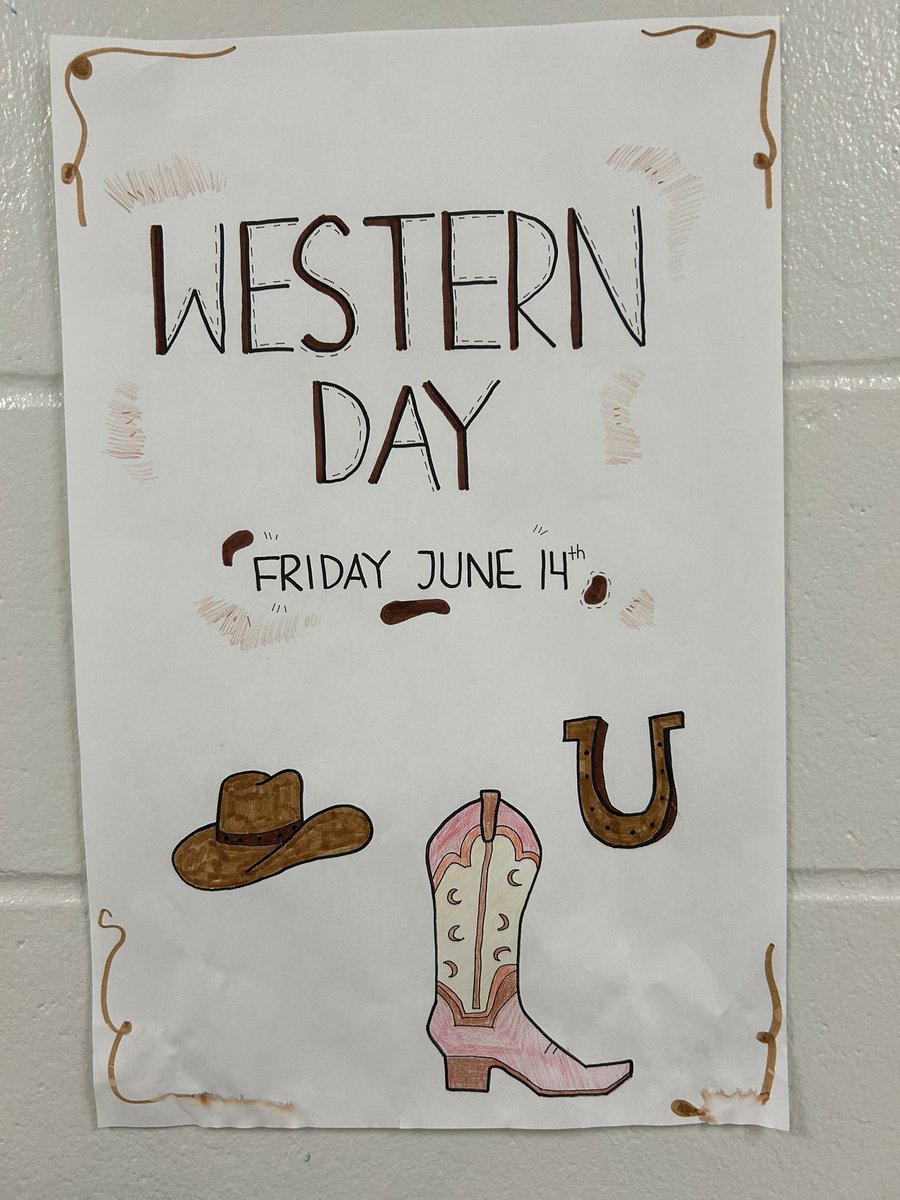 WESTERN
DAY
FRIDAY JUNE 14th